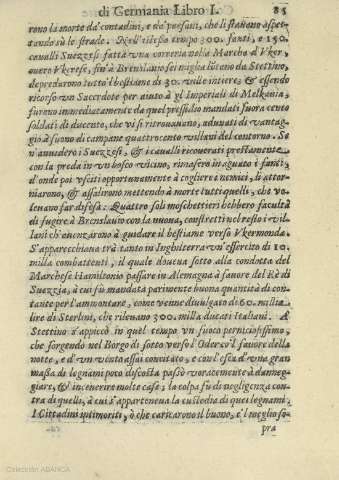 di Germania Libro I. 85
rono la morte da' contadini, e da' paesani, che li stauano aspet-
tando sù le strade. Nell' istesso tempo 300. fanti, e 150.
caualli Suezzesi fatta vna correria nella Marcha d'Vker,
ouero Vkerese, fin' à Brenslauo sei miglia lūteno da Stettino,
depredarono tutto'l bestiame di 30. ville intiere; & essendo
ricorso vn Sacerdote per aiuto à gl' Imperiali di Melkauia,
furono immediatamente da quel pressidio mandati fuora cento
soldati di ducento, che vi si ritrouauano, adunati di vantag-
gio à suono di campane quattrocento villani del contorno. Se
n' auuidero i Suezzesi, & i caualli ricouerati prestamente
con la preda in vn bosco vicino, rimasero in aguato i fanti,
d' onde poi vsciti opportunamente à cogliere i nemici, li attor-
niarono, & assalirono mettendo à morte tutti quelli, che vo-
leuano far difesa: Quattro soli moschettieri hebbero facultà
di fugire à Brenslauio con la nuoua, constretti nel resto i vil-
lani ch' euenzarono à guidare il bestiame verso Vkermonda.
S' apparecchiaua trà tanto in Inghilterra vn' essercito di 10.
milla combattenti, il quale doueua sotto alla condotta del
Marchese Hamiltonio passare in Alemagna à fauore del Rè di
Suezzia, à cui fù mandata parimente buona quantità di con-
tante per l'ammontare, come venne diuulgato di 60. mila
lire di Sterlini, che rileuano 300. milla ducati Italiani. A
Stettino s'appiccò in quel tempo vn fuoco perniciosissimo,
che sorgendo nel Borgo di sotto verso l'Odera co'l fauore della
notte, e d' vn vento assai concitato, e con l' esca d' vna gran
massa di legnami poco discosta passò voracemente à danneg-
giare, & incenerire molte case; la colpa fù di negligenza con-
tra di quelli, à cui s'apparteneua la custodia di quei legnami.
I Cittadini intimoriti, ò che caricarono il buono, e'l meglio so-
pra
Colección ABANCA